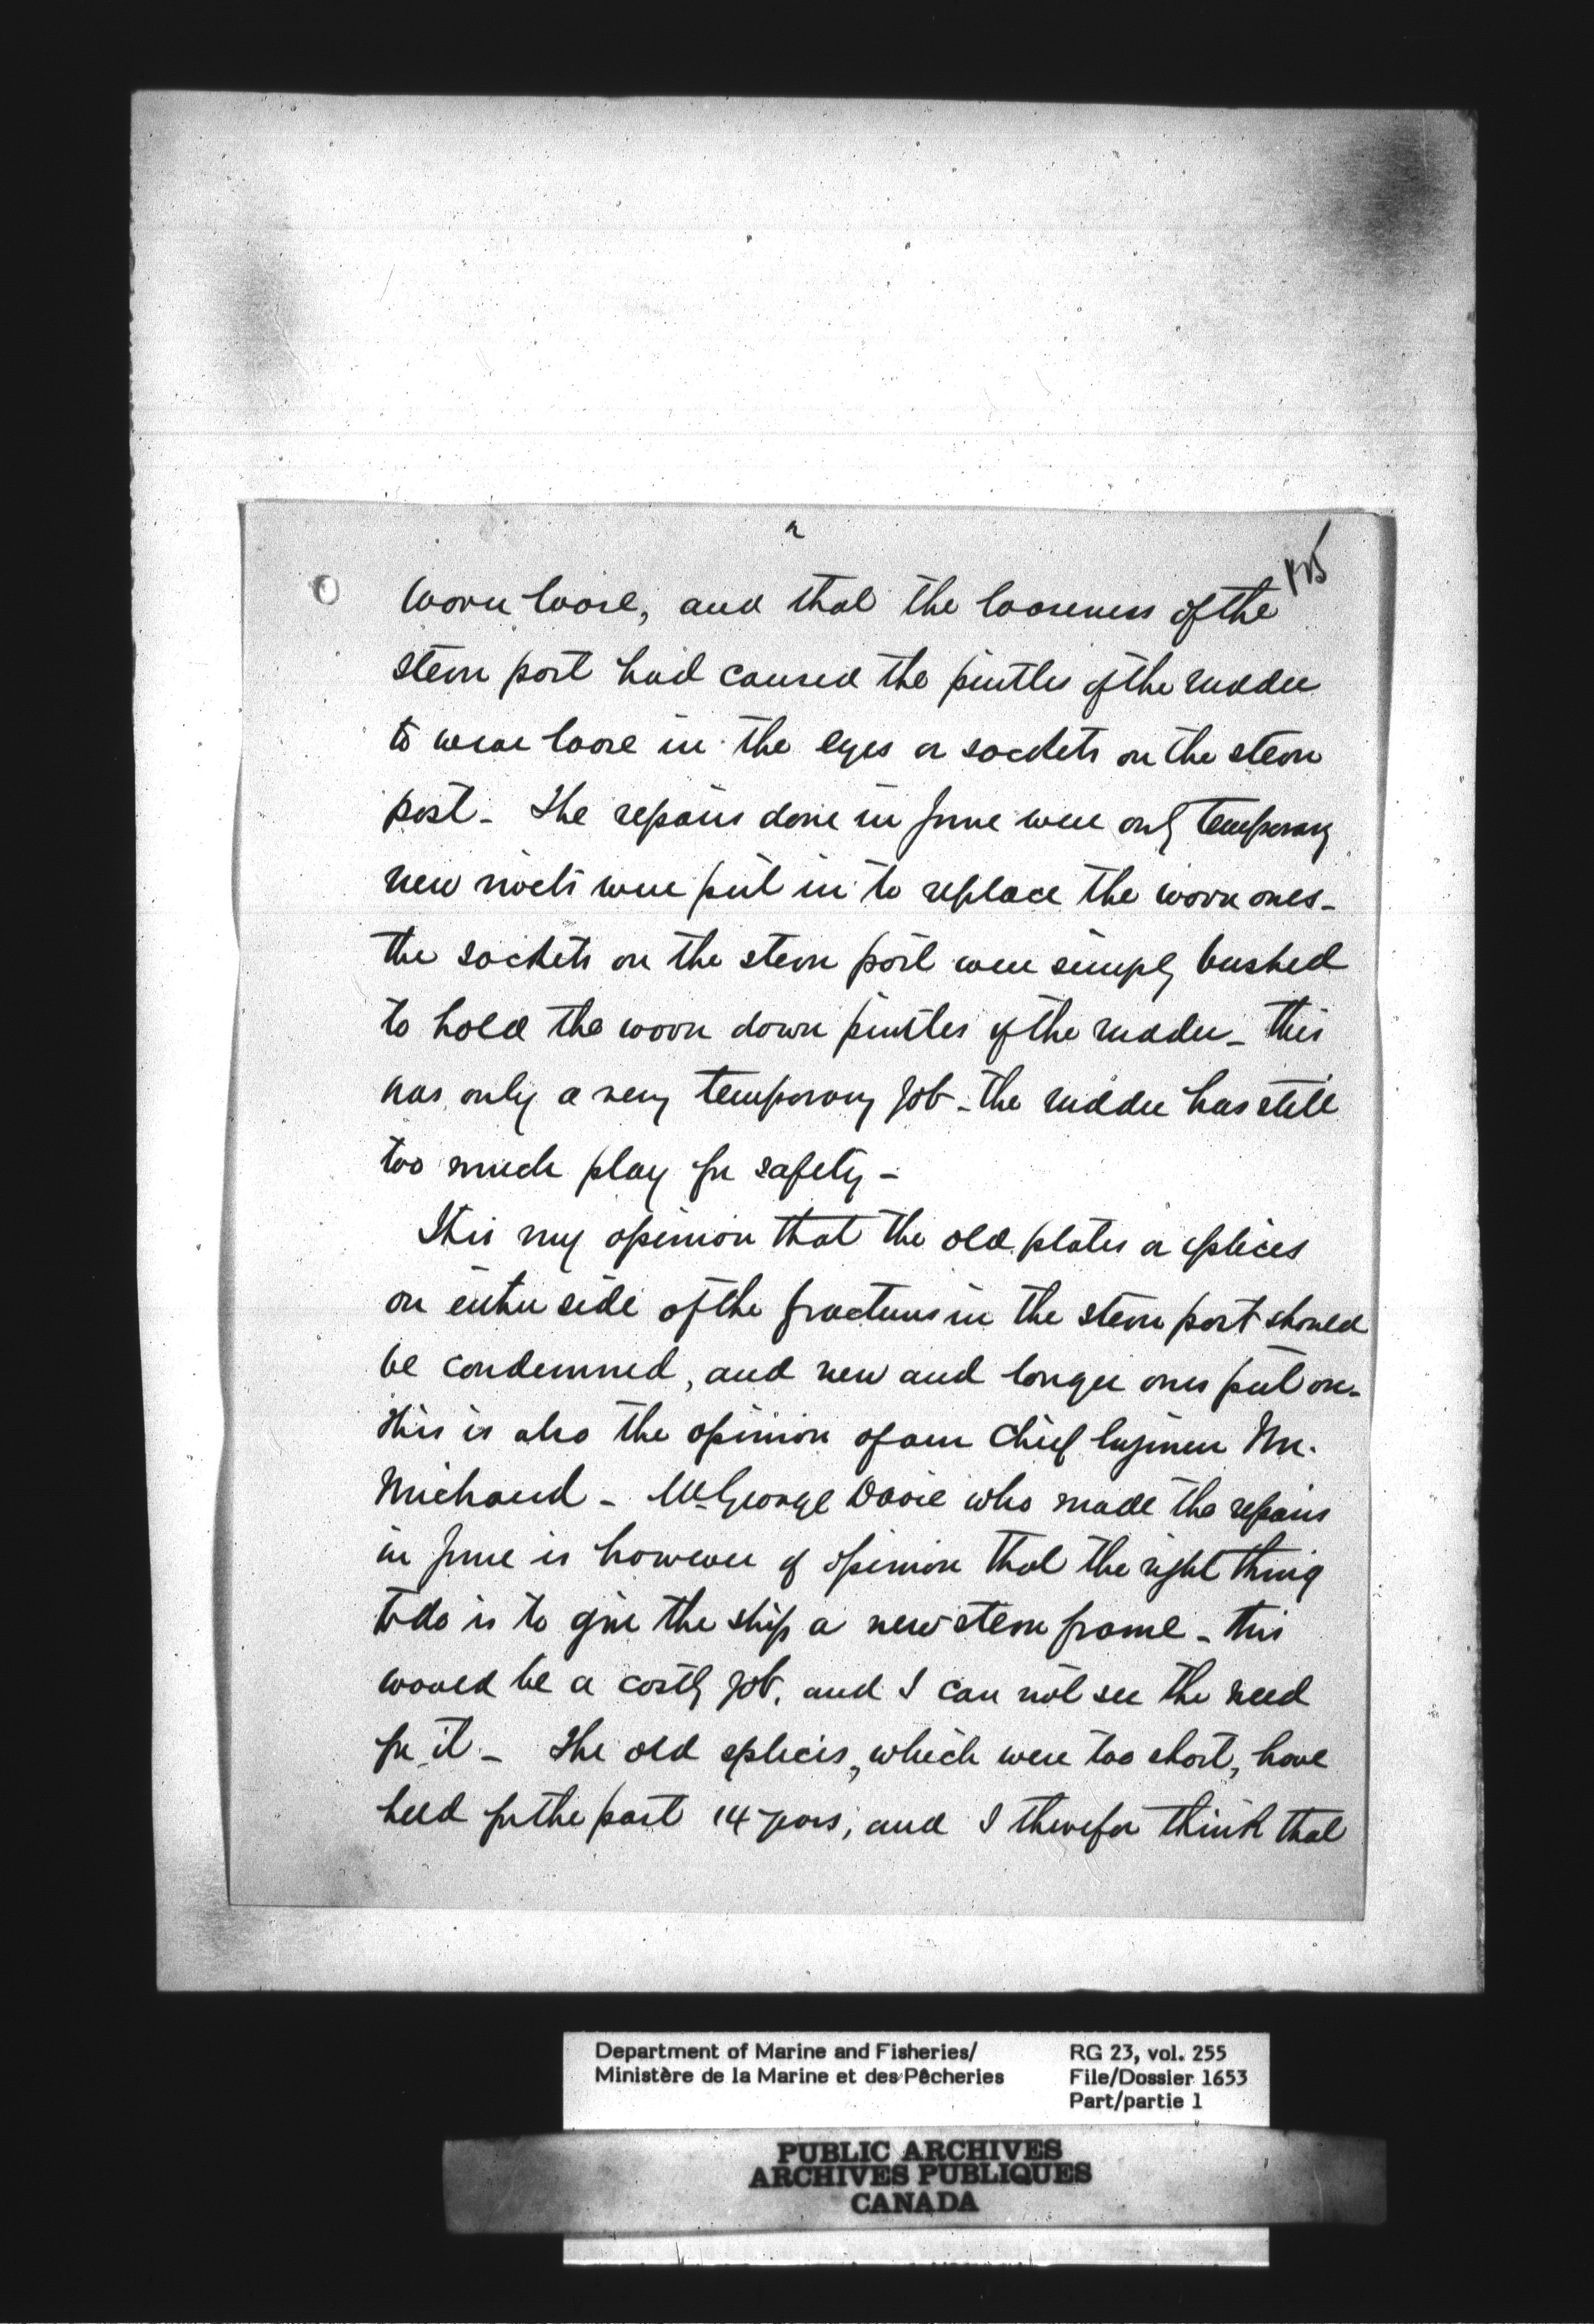 2
worn loose, and that the looseness of the
stern post had caused the pintles of the rudder
to wear loose in the eyes or sockets on the stern
post - The repairs done in June were only temporary
new rivets were put in to replace the worn ones -
the sockets on the stern post were simply bushed
to hold the worn down pintles of the rudder - this
was only a very temporary job - the rudder has still
too much play for safety -
It is my opinion that the old plates or splices
on either side of the fractures in the stern post should
be condemned, and new and longer ones put on -
this is also the opinion of our Chief Engineer Mr.
Michaud - Mr George Davie who made the repairs
in June is however of opinion that the right thing
to do is to give the ship a new stern frame - this
would be a costly job, and I can not see the need
for it - The old splices, which were too short, have
held for the past 14 years, and I therefor think that
Department of Marine and Fisheries/ RG 23, vol. 255
Ministère de la Marine et des Pêcheries File/Dossier 1653
Part/partie 1
PUBLIC ARCHIVES
ARCHIVES PUBLIQUES
CANADA